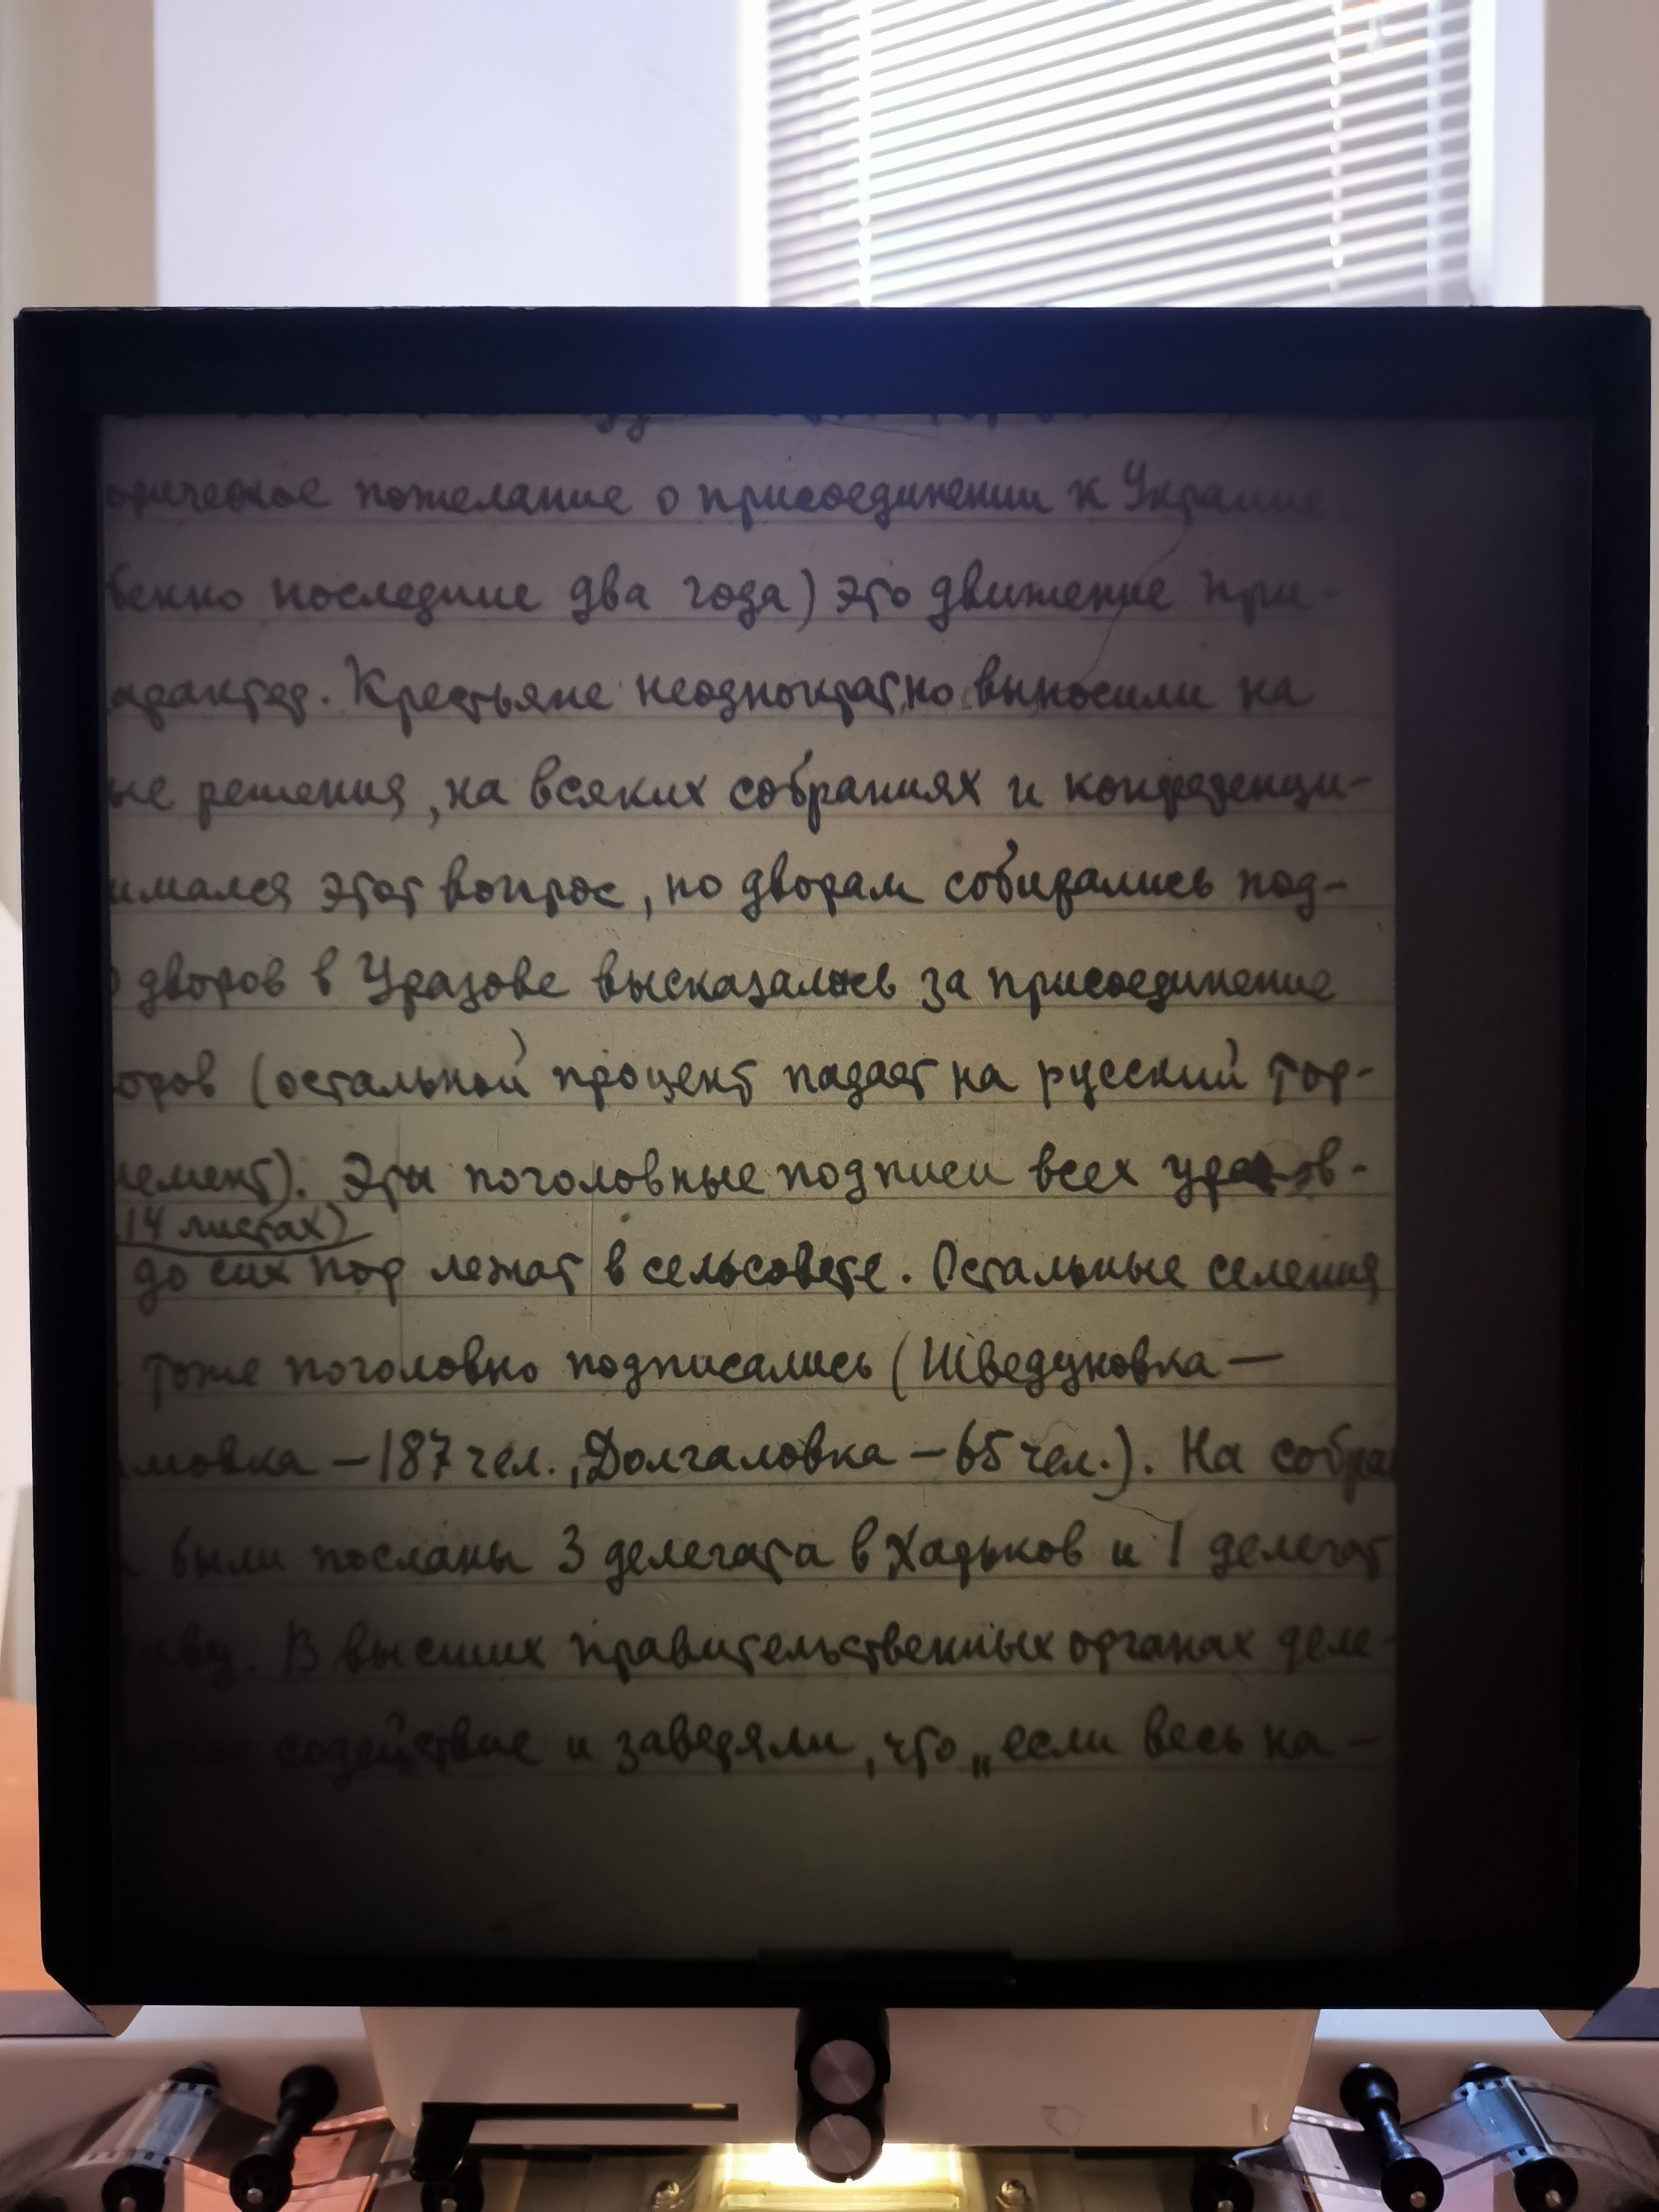 орическое пожелание о присоединении к Украине
бенно последние два года) это движение при-
арактер. Крестьяне неоднократно выносили на
ые решения, на всяких собраниях и конференци-
имался этот вопрос, по дворам собирались под-
дворов в Уразове высказалось за присоединение
оров (остальной процент падает на русский тор-
лемент). Эти поголовные подписи всех уразов-
14 листах)
до сих пор лежат в сельсовете. Остальные селения
тоже поголовно подписались (Шведуновка —
мовка — 187 чел., Долгаловка — 65 чел.). На собра
были посланы 3 делегата в Харьков и 1 делегат
В высших правительственных органах деле-
содействие и заверяли, что „если весь на-